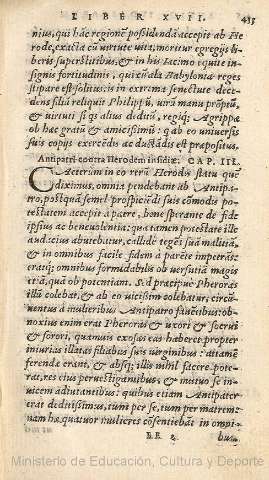 LIBER XVII. 435
mius, qui hac regione possidenda accepit ab He
rode, exacta cũ virtute vita, moritur egregijs li
beris superstitibus, & in his Iacimo equite in=
signis fortitudinis, qui eũ ala Babylonia reges
stipare est solitus: is in extrema senectute dece=
dens filiũ reliquit Philippũ, virũ manu prõptũ,
& virtuti si quis alius deditũ, regiq; Agrippæ
ob hæc gratũ & amicissimũ: qui ab eo universis
suis copijs exercendis ac ductãdis est præpositus.
Antipatri contra Herodem insidiæ. CAP. III.
CAeterum in eo rerũ Herodis statu quẽ
diximus, omnia pendebant ab Antipa=
tro, postquã semel prospiciẽdi suis cõmodis po=
testatem accepit a patre, bene sperante de fide
ipsius ac benevolentia: qua tamen potestate ille
audacius abutebatur, callidè tegẽs suã malitiã,
& in omnibus facile fidem à patre impetrãs:
eratq; omnibus formidabilis ob versutiã magis
etiã, quã ob potentiam. Sed præcipuè Pheroras
illũ colebat, & ab eo vicissim colebatur, circũ=
ventus à mulieribus Antipatro fauẽtibus: ob=
noxius enim erat Pheroras & vxori & socrui
& sorori, quamuis exosas eas haberet propter
iniurias illatas filiabus suis virginibus: attamẽ
ferendæ erant, & absq; illis nihil facere pote=
rat, res eius peruestigantibus, & mutuò se in=
vicem adiuvantibus: quibus etiam Antipater
erat deditissimus, tum per se, tum per matrem:
nam hæ quatuor mulieres cõsentiebãt in omni=
EE 2 bus.
Ministerio de Educación, Cultura y Deporte